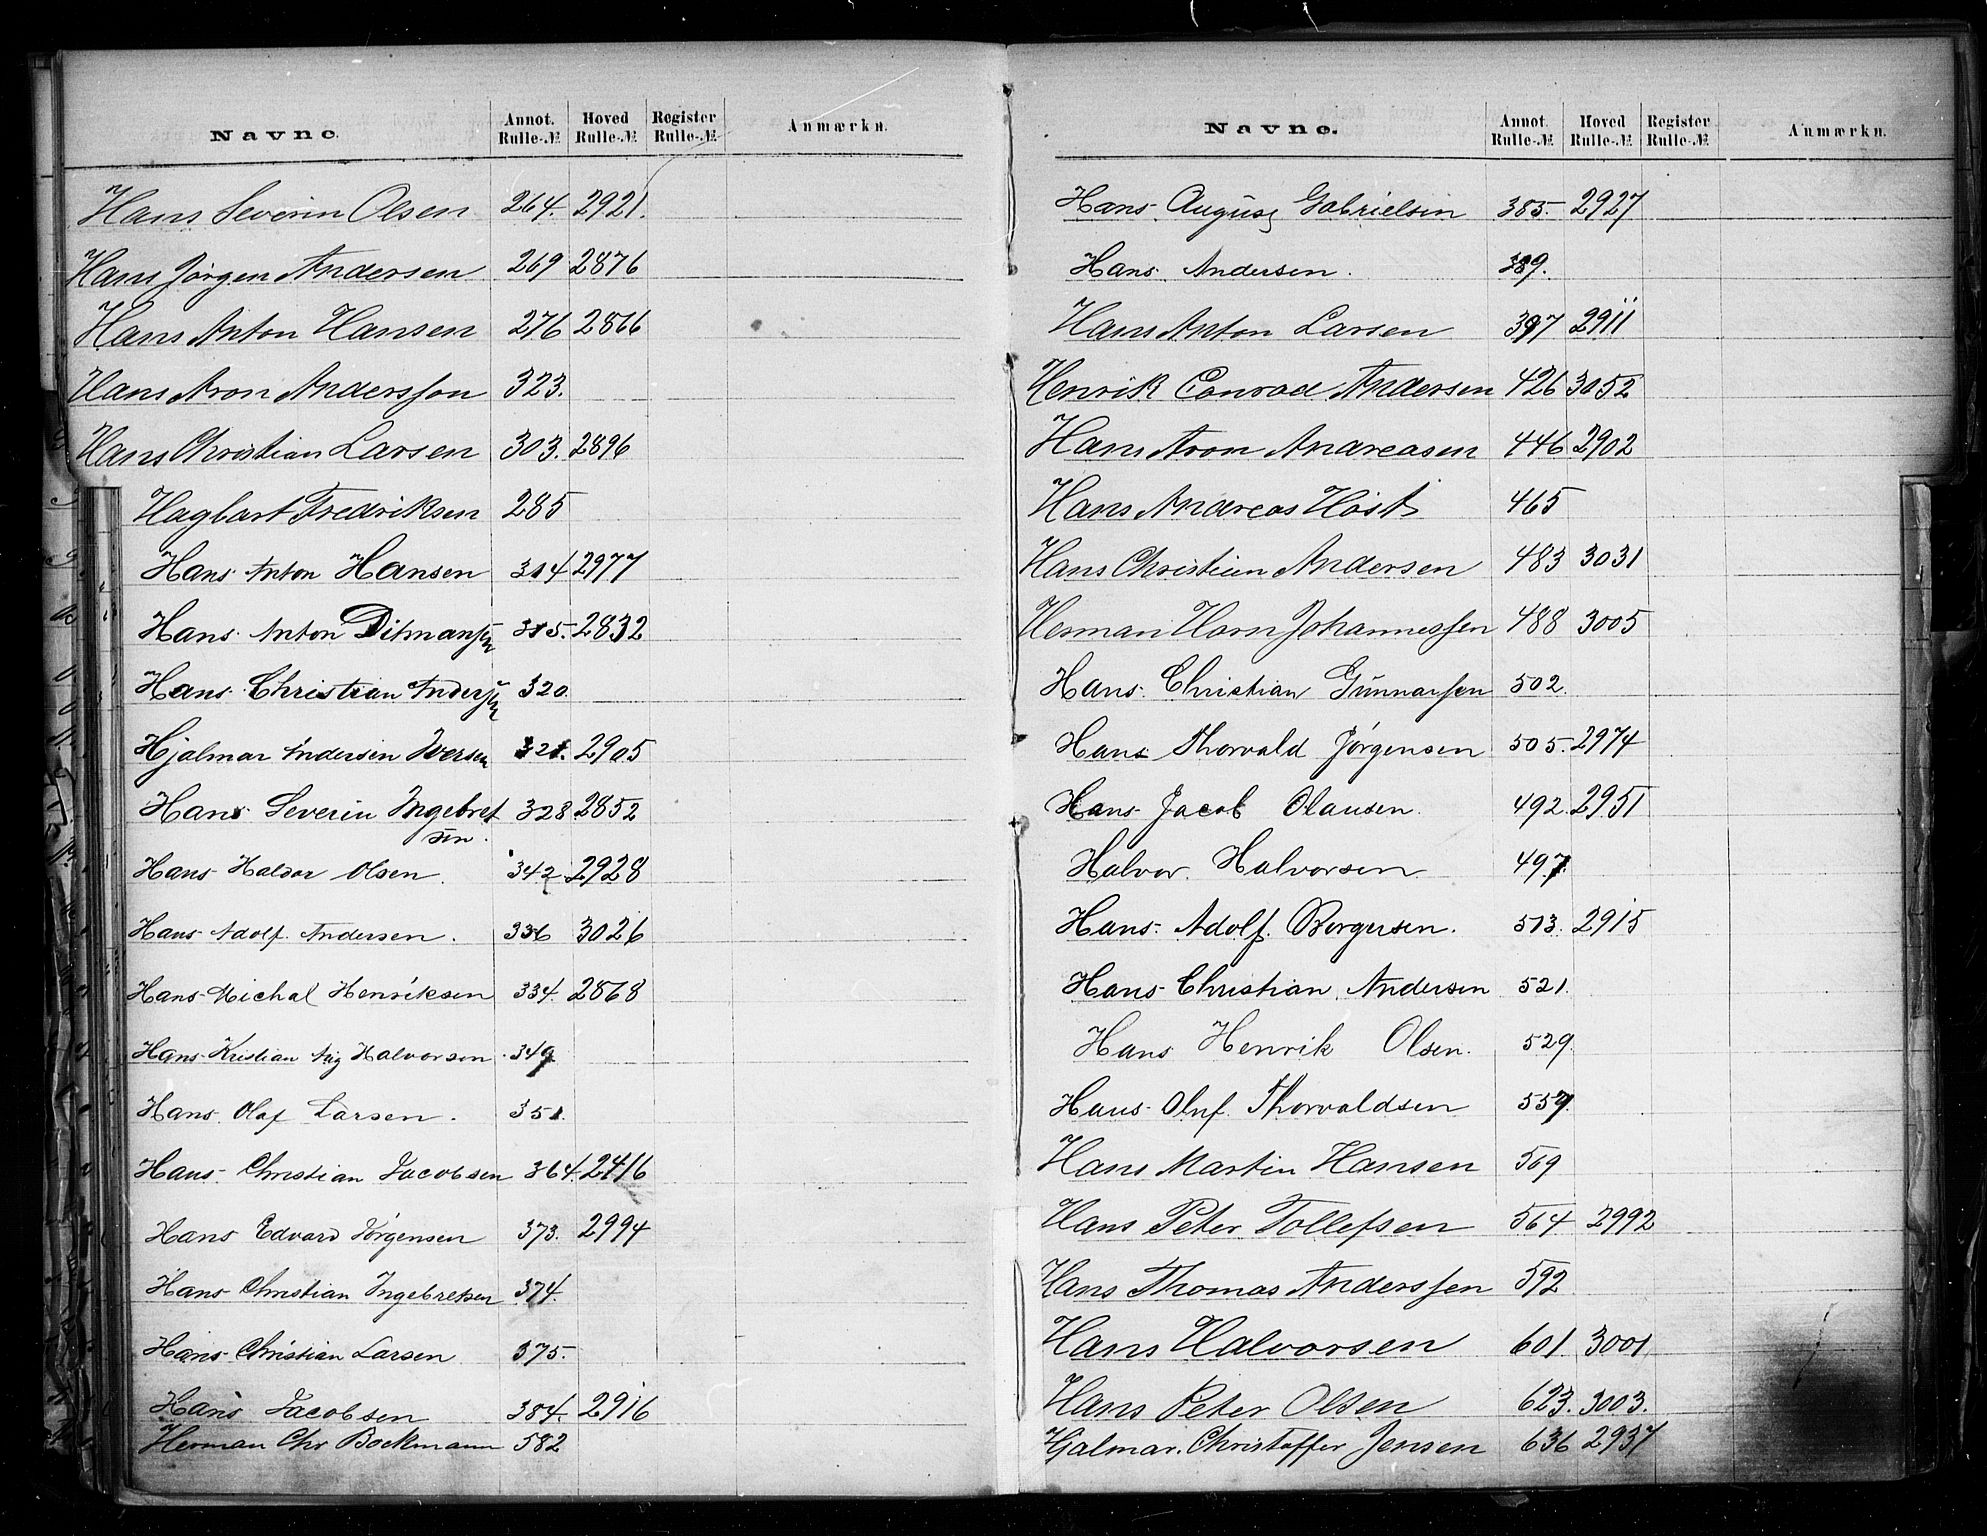 Navne. Annot. Rulle-№ Hoved Rulle-№ Register Rulle-№ Anmærkn.
Hans Severin Olsen 264. 2921.
Hans Jörgen Andersen 269 2876
Hans Anton Hansen 276 2866
Hans Aron Andersson 323.
Hans Christian Larsen 303. 2896
Hagbart Fredriksen 285
Hans Anton Hansen 314 2977
Hans Anton Ditmansen 315. 2832
Hans Christian Andersen 320.
Hjalmar Andersen Iversen 321. 2905
Hans Severin Ingebret 328 2852
sen.
Hans Haldor Olsen. 342 2928
Hans Adolf. Andersen. 336 3026
Hans Michal Henriksen 334. 2868
Hans Kristian Aug Halvorsen 349
Hans Olaf Larsen. 351.
Hans Christian Jacobsen 364. 2416
Hans Edvard Jörgensen 373. 2994
Hans Christian Ingebretsen 374.
Hans Christian Larsen 375.
Hans Jacobsen 384. 2916
Herman Chr Bockmann 582
Navne. Annot. Rulle-№ Hoved Rulle-№ Register Rulle-№ Anmærkn.
Hans August Gabrielsen 385. 2927
Hans Andersen. 389.
Hans Anton Larsen 397 2911
Henrik Conrad Andersen 426 3052
Hans Aron Andreasen 446 2902
Hans Andreas Höst 465
Hans Christian Andersen 483 3031
Herman Horn Johannessen 488 3005
Hans Christian Gunnarsen 502.
Hans Thorvald Jörgensen 505. 2974
Hans Jacob Olausen. 492. 2951
Halvor. Halvorsen 497.
Hans. Adolf. Borgersen. 513. 2915
Hans Christian Andersen 521.
Hans Henrik Olsen. 529.
Hans Oluf. Thorvaldsen 557.
Hans Martin Hansen 569
Hans Peter Tollefsen 564. 2992
Hans Thomas Anderssen 592
Hans Halvorsen 601. 3001
Hans Peter Olsen 623. 3003.
Hjalmar. Christoffer Jensen 636 2937